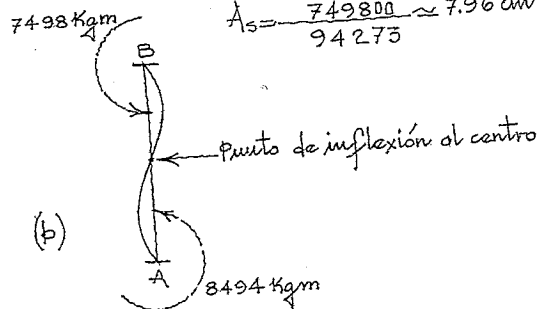 7498 Kgm
As = 749800 / 94273 ≃ 7.96 cm
B
Punto de inflexión al centro
(b)
A
8494 Kgm